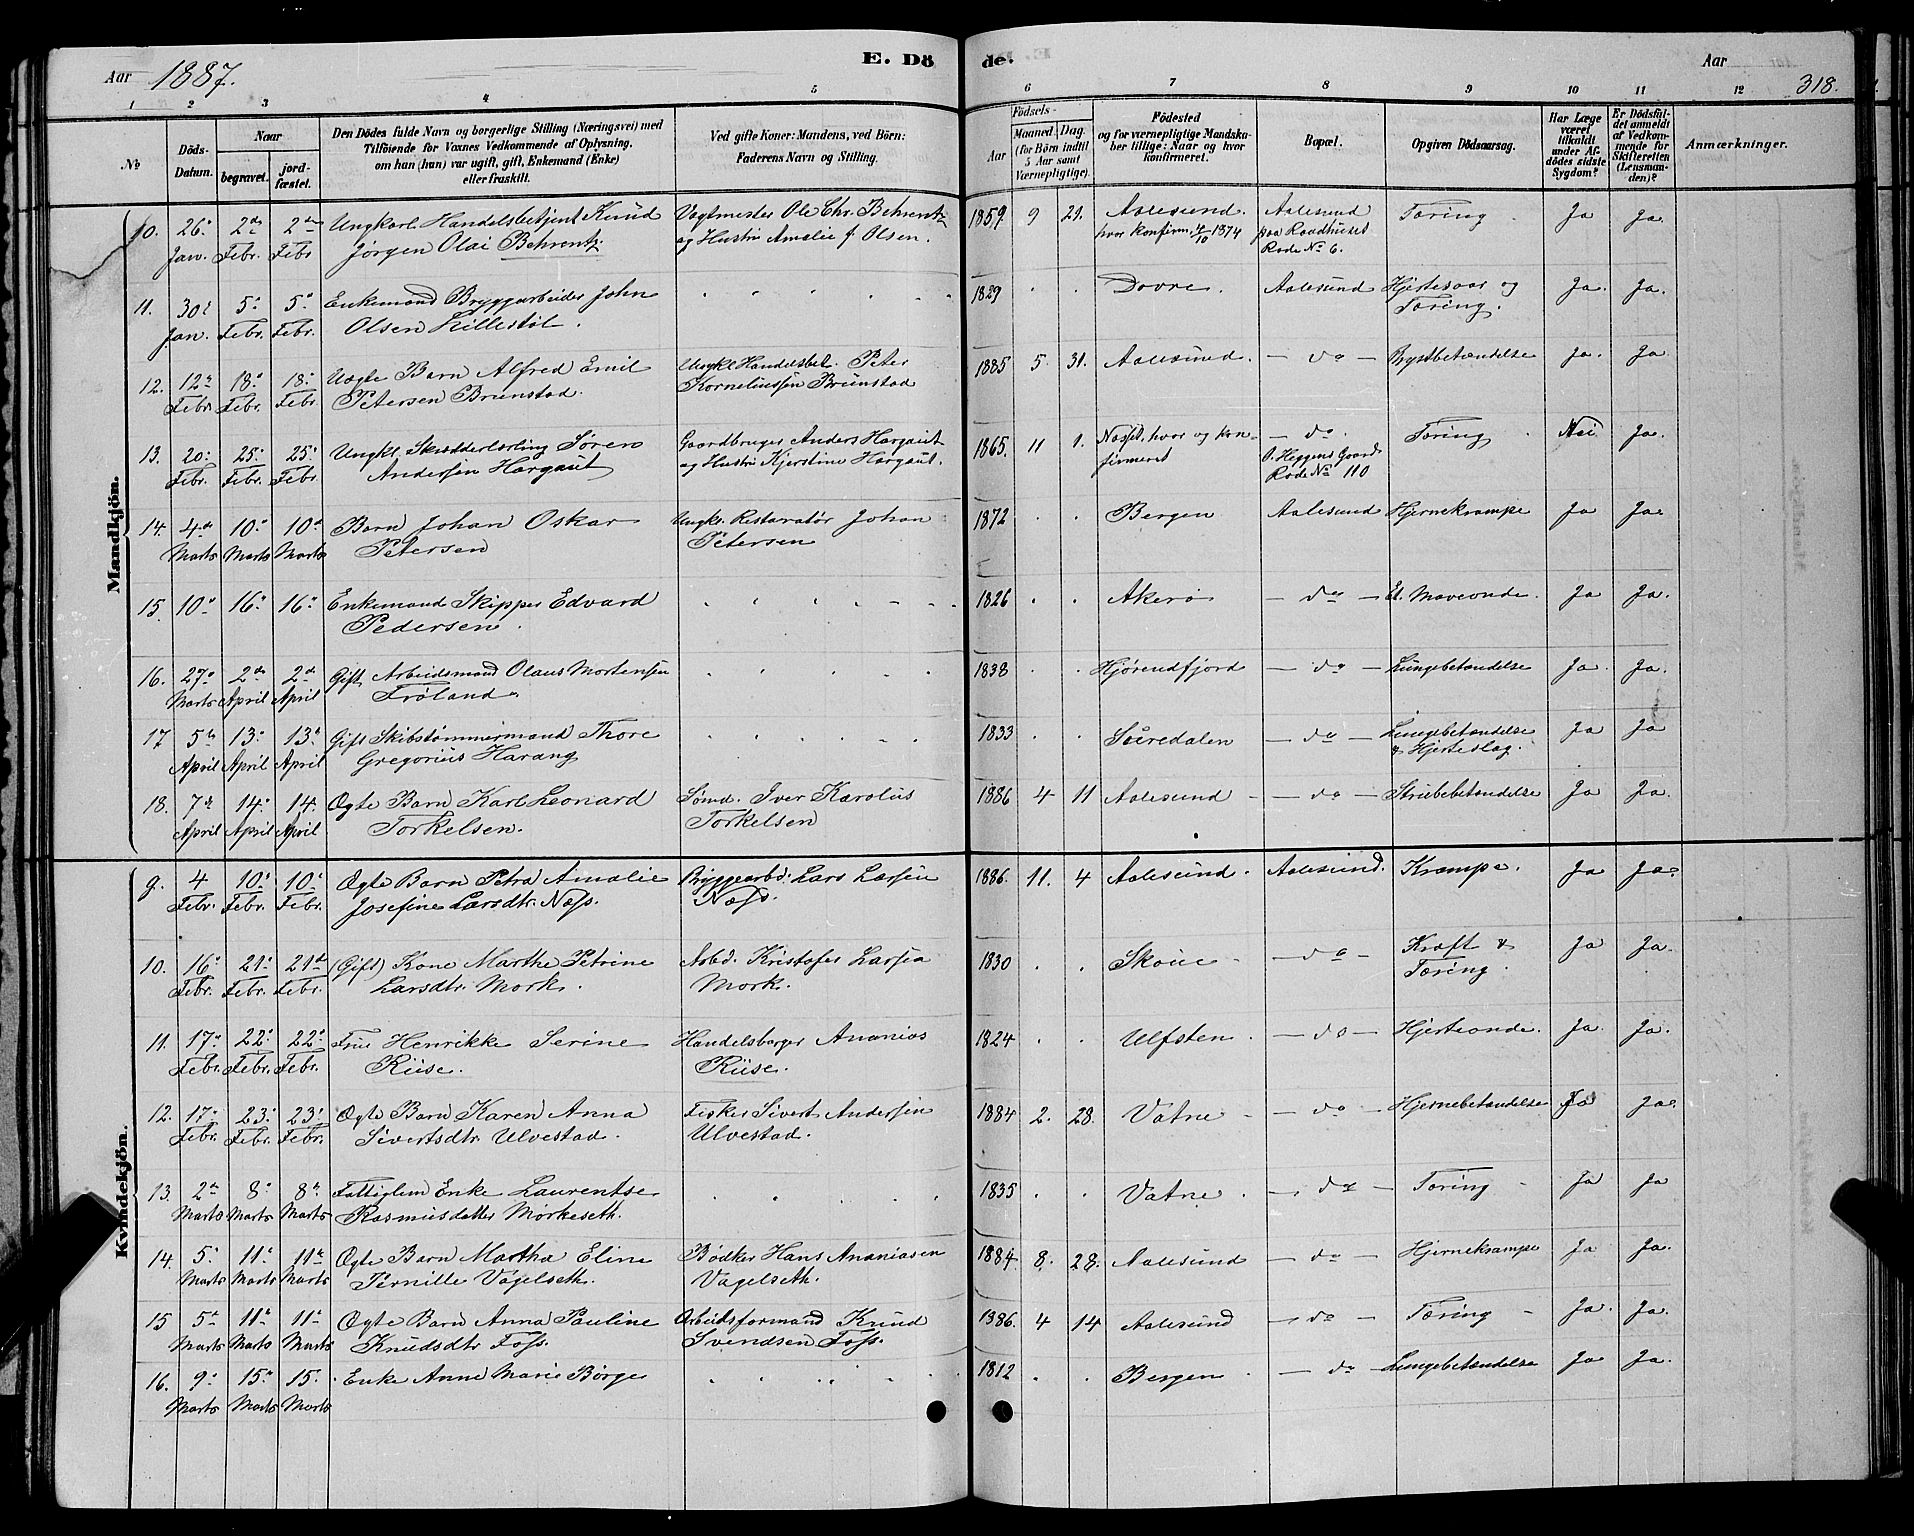 Aar 1887. E. Dö de. Aar 318.
1 2 3 4 5 6 7 8 9 10 11 12
No
Döds-Datum.
Naar
begravet. jordfæstet.
Den Dödes fulde Navn og borgerlige Stilling (Næringsvei) med
Tilföiende for Voxnes Vedkommende af Oplysning,
om han (hun) var ugift, gift, Enkemand (Enke)
eller fraskilt.
Ved gifte Koner: Mandens, ved Börn:
Faderens Navn og Stilling.
Födsels-
Aar Maaned Dag
(for Börn indtil
5 Aar samt
Værnepligtige).
Födested
og for værnepligtige Mandskaber tillige: Naar og hvor
konfirmeret.
Bopæl.
Opgiven Dödsaarsag.
Har Læge
været
tilkaldt
under Afdödes sidste
Sygdom?
Er Dödsfaldet anmeldt
af Vedkommende for
Skifteretten
(Lensmanden)?
Anmærkninger.
Mandkjön.
10. 26. 2den 2den Ungkarl Handelsbetjent Knud Vagtmester Ole Chr. Behrentz 1859. 9 21. Aalesund. Aalesund Tæring Ja Ja.
Jan. Febr. Febr Jørgen Olai Behrentz og Hustru Amalie f. Olsen. hvor konfirm. 4/10 1874 paa Raadhuset
Rode No 6.
11. 30 5 5 Enkemand Bryggarbeider John 1829 Dovre. Aalesund Hjertesaar og Ja. Ja.
Jan. Febr. Febr. Olsen Lillestöl. Tæring.
12. 12 18 18 Uægte Barn Alfred Emil Ungkl Handelsbet. Peter 1885 5. 31. Aalesund. do Brystbetændelse Ja. Ja
Febr. Febr. Febr. Petersen Brunstad. Korneliussen Brunstad
13. 20 25 25 Ungkl. Skrædderlærling Søren Gaardbruger Anders Hargaut 1865. 11 1. hvor og kon- do Tæring Nei Ja.
Febr. Febr. Febr. Andersen Hargaut og Hustru Kjerstine Hargaut. firmeret O. Heggens Gaard
Rode No 110
14. 4 10 10 Barn Johan Oskar Ungkr. Restauratør Johan 1872 Bergen Aalesund Hjernekrampe Ja Ja
Marts Marts Marts Petersen Petersen
15. 10 16 16 Enkemand Skipper Edvard 1826 Akerø do Maveonde. Ja Ja.
Pedersen.
16. 27 2 2 Gift Arbeidsmand Olaus Mortensen 1838 Hjørendfjord do Lungebetændelse Ja Ja.
Marts April April Frøland
17 5 13 13 Gift Skibstømmermand Thore 1833 do Lungebetændelse Ja Ja
April April April Gregorius Harang & Hjerteslag.
18. 7 14 14. Ægte Barn Karl Leonard Sömd. Iver Karolus 1886 4 11 Aalesund do Strubebetændelse Ja Ja.
April April April Torkelsen. Torkelsen
Kvindekjön.
9. 4 10 10 Ægte Barn Petra Amalie Bryggearbd. Lars Larsen 1886. 11. 4 Aalesund. Aalesund. Krampe. Ja Ja.
Febr. Febr. Febr. Josefine Larsdtr. Næss. Næss.
10. 16 21 21 (Gift) Kone Marthe Petrine Arbd. Kristofer Larsen 1830 do Kræft & Ja Ja.
Febr. Febr. Febr. Larsdtr. Mork. Mork. Tæring.
11. 17 22 22 Frue Henrikke Serine Handelsborger Ananias 1824 Ulfsten. do Hjerteonde. Ja. Ja.
Febr. Febr. Febr. Riise. Riise.
12. 17 23 23 Ægte Barn Karen Anna Fisker Sivert Andersen 1884 2. 28. Vatne do Hjernebetændelse Ja Ja.
Febr. Febr. Febr. Sivertsdtr. Ulvestad. Ulvestad.
13. 2 8 8 Fattiglem Enke Laurentse 1835 Vatne do Tæring Ja Ja
Marts Marts Marts Rasmusdatter Morkeseth.
14. 5 11 11 Ægte Barn Martha Eline Bødker Hans Ananiasen 1884 8. 28. Aalesund do Hjernekrampe Ja Ja.
Marts Marts Marts Pernille Vagelseth. Vagelseth.
15 5 11 11 Ægte Barn Anna Pauline Arbeidsformand Knud 1886. 4 14 Aalesund do Tæring Ja. Ja.
Marts Marts Marts Knudsdtr Foss. Svendsen Foss.
16. 9 15 15. Enke Anne Marie Børge 1812 Bergen do Lungebetændelse Ja Ja.
Marts Marts Marts